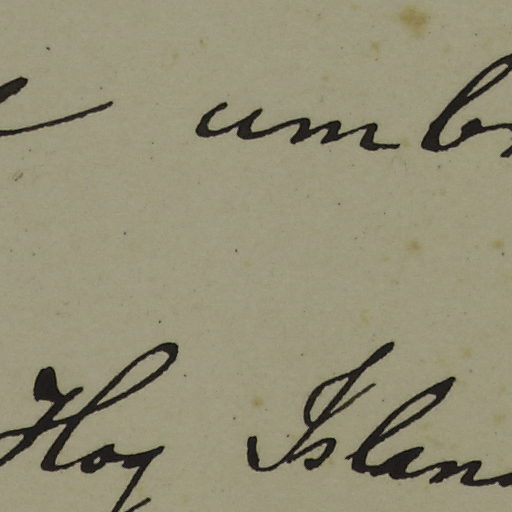 umb
Hog Islan